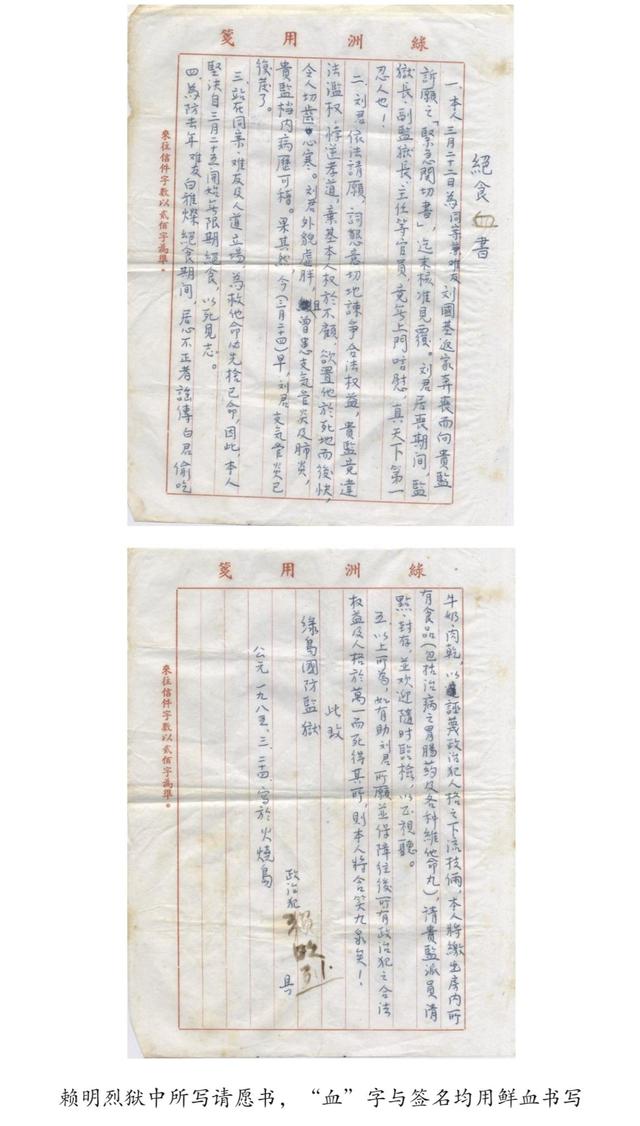 綠洲用箋
絕食血書
一、本人三月二十二日為同窗難友刘國基返家弃喪而向貴監
訴願之「緊急関切書」，迄未核准見覆。刘君居喪期間，監
獄長、副監獄長、主任等官員，竟無上門唁慰，真天下第一
忍人也！
二、刘君依法請願，詞懇意切地諫爭合法權益，貴監竟違
法濫权，悖逆孝道，棄基本人权於不顧，欲置他於死地而後快，
令人切齒心寒。刘君外貌虛胖，且曾患支氣管炎及肺炎，
貴監档內病歷可稽。果其然，今(三月二十四)早，刘君支气管炎已
復茂了。
三、站在同案、难友及人道立場，為救他命必先捨己命，因此，本人
堅決自三月二十五開始無限期絕食，以死見志。
四、為防去年难友白雅燦絕食期間，居心不正者謠傳白君偷吃
來往信件字數以貳佰字為準。
綠洲用箋
牛奶、肉乾，以誣蔑政治犯人格之下流技倆，本人將繳出房內所
有食品(包括治病之胃腸药及各种維他命丸)，請貴監派員清
點、封存，並欢迎隨时監檢，以正視聽。
五、以上所為，如有助刘君所願並保障往後所有政治犯之合法
权益及人格於萬一而死得其所，則本人將含笑九泉矣！
此致
綠島國防監獄
政治犯 賴明烈 具
公元一九八五、三、二十四、寫於火燒島
來往信件字數以貳佰字為準。
赖明烈狱中所写请愿书，“血”字与签名均用鲜血书写